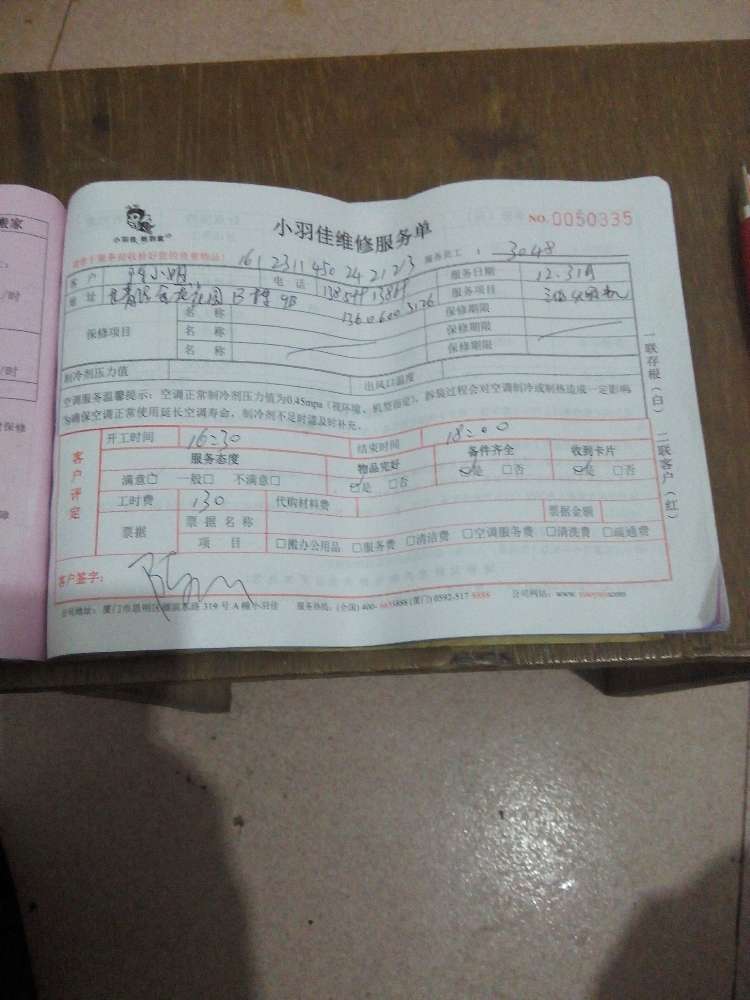 搬家
/时
/时
保修
障
小羽佳 找到家
小羽佳维修服务单
NO.0050335
请您于服务前收检好您的贵重物品:
161 2311 450 24 21 213
服务员工: 3048
客户 小姐 电话 服务日期 12.31日
地址 花园 服务项目
13606003126
保修项目 名称 保修期限
名称 保修期限
名称 保修期限
制冷剂压力值 出风口温度
空调服务温馨提示:空调正常制冷剂压力值为0.45mpa(视环境、机型而定),拆装过程会对空调制冷或制热造成一定影响
为确保空调正常使用延长空调寿命,制冷剂不足时需及时补充。
客户评定
开工时间 16:30 结束时间 18:00
服务态度 物品完好 备件齐全 收到卡片
满意□ 一般□ 不满意□ □是 □否 □是 □否 □是 □否
工时费 130 代购材料费
票据 票据名称 票据金额
项目 □搬办公用品 □服务费 □清洁费 □空调服务费 □清洗费 □疏通费
客户签字:
公司地址:厦门市思明区湖滨东路319号A幢小羽佳 服务热线:(全国)400-8885888(厦门)0592-5178888 公司网站:www.xiaoyujia.com
一联存根(白) 二联客户(红)